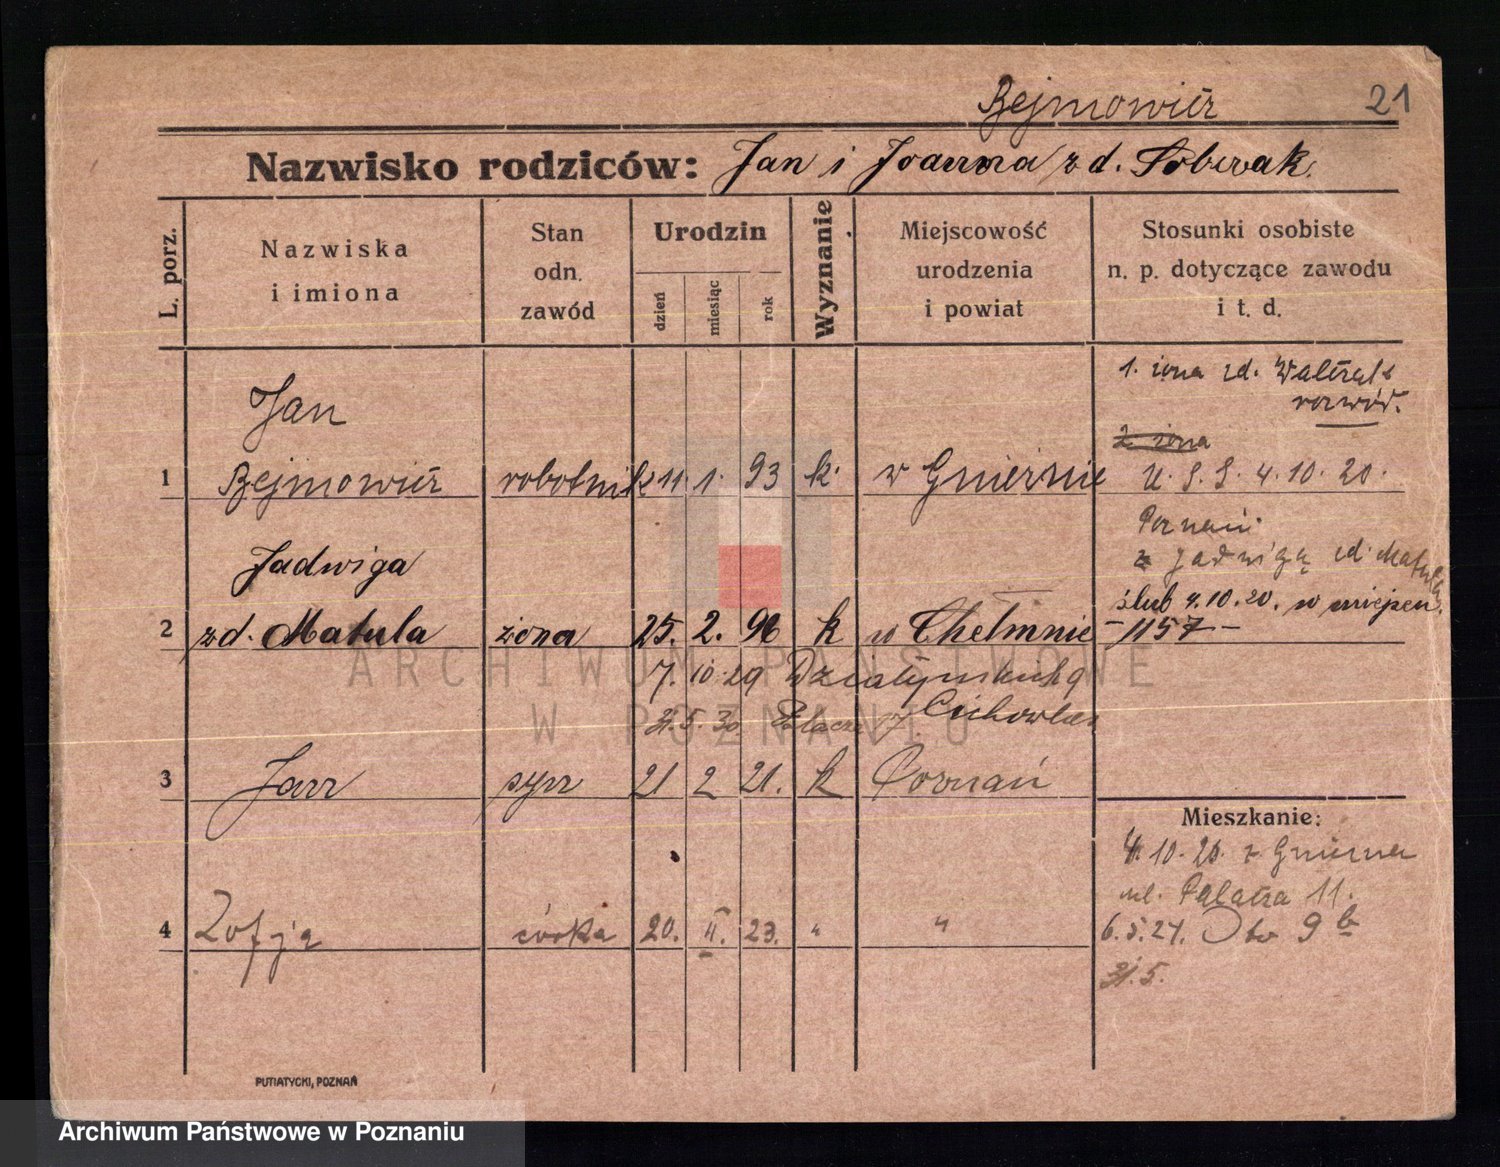 Bejmowicz 21
Nazwisko rodziców: Jan i Joanna z d.
L. porz.
Nazwiska
i imiona
Stan
odn.
zawód
Urodzin
dzień
miesiąc
rok
Wyznanie
Miejscowość
urodzenia
i powiat
Stosunki osobiste
n. p. dotyczące zawodu
i t. d.
1. żona zd.
rozwód.
2 żona
Jan
1 Bejmowicz robotnik 11. 1. 93 k. w Gnieźnie
U. S. S. 4.10.20.
Poznań.
z Jadwigą zd. Matula
ślub 4.10.20. w miejscu
- 1157 -
Jadwiga
2 zd. Matula żona 25. 2. 96 k w Chełmnie
7. 10 29 Działyńskich 9
31.5.30
3 Jan syn 21 2 21. k Poznań
Mieszkanie:
4.10.20. z Gniezna
ul. 11.
4 Zofja córka 20. II. 23. " "
6.5.27. 9 b
31.5.
PUTIATYCKI, POZNAŃ
ARCHIWUM PAŃSTWOWE
W POZNANIU
Archiwum Państwowe w Poznaniu